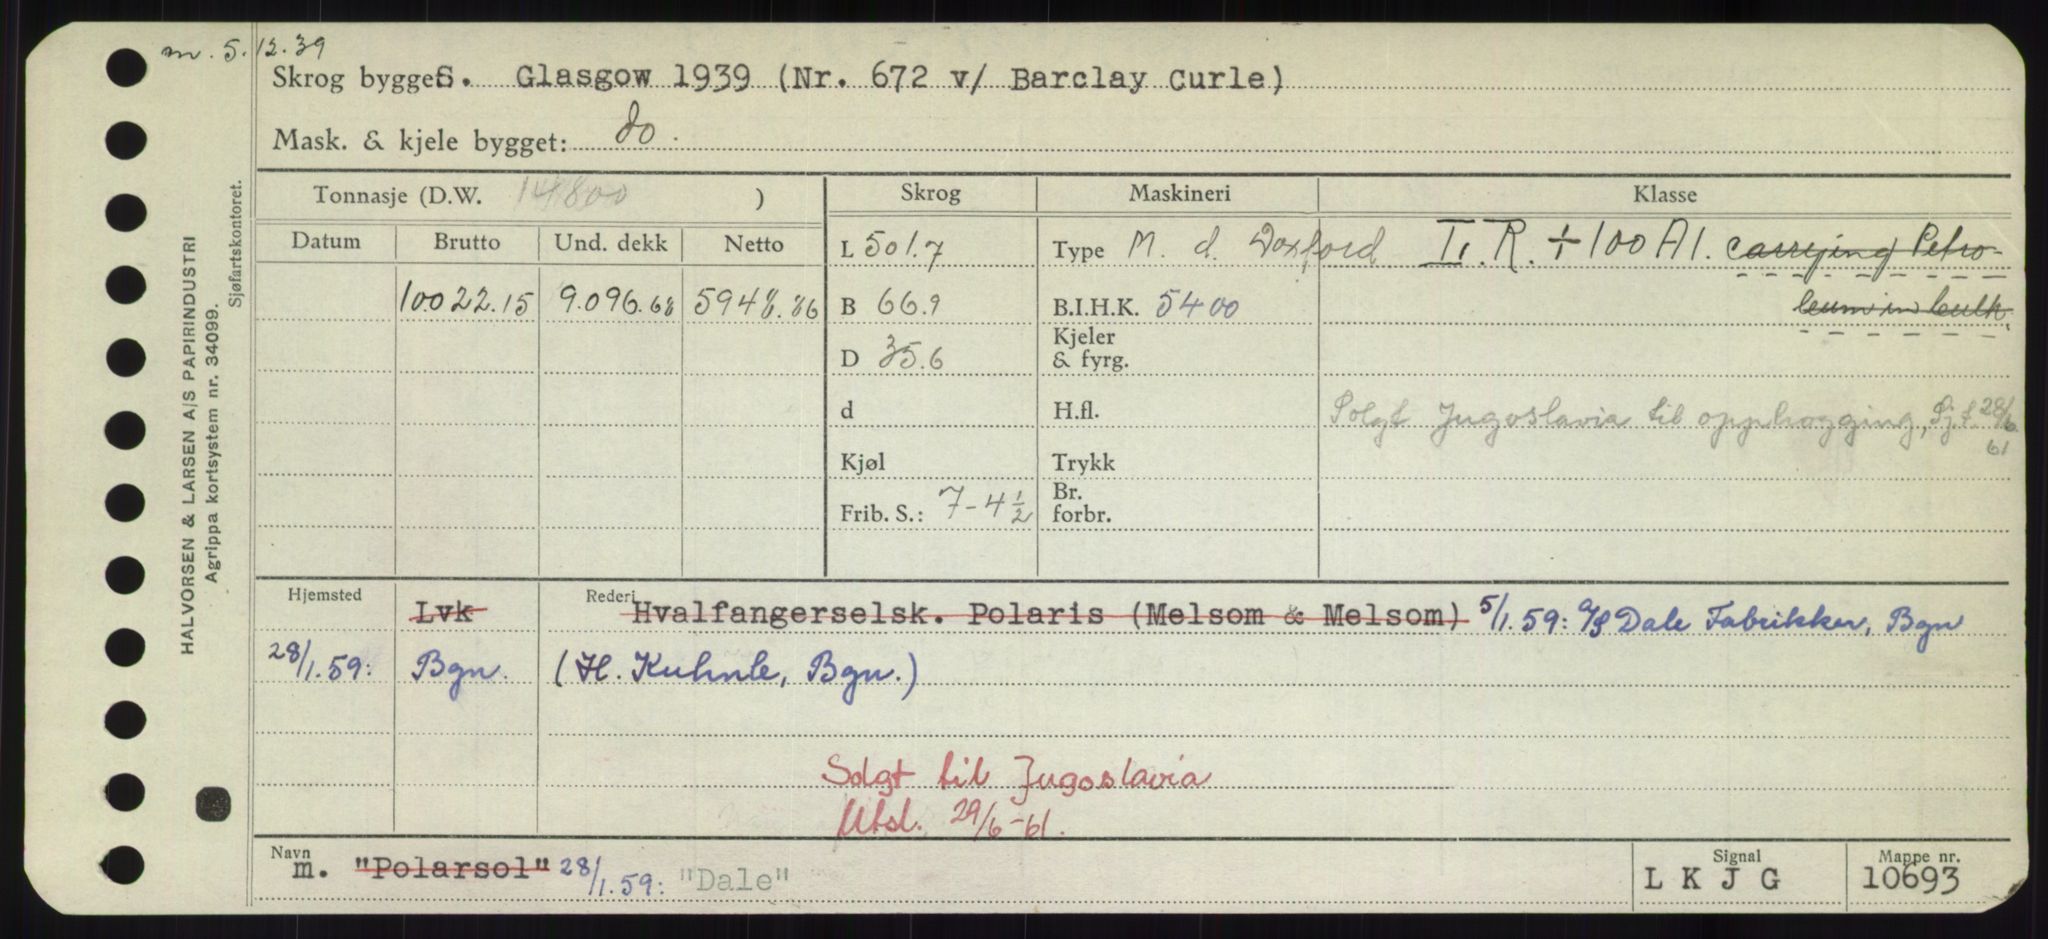 m. 5.12.39
Skrog bygget: S. Glasgow 1939 (Nr. 672 v/ Barclay Curle)
Mask. & kjele bygget: do.
Tonnasje (D.W. 14800 ) Skrog Maskineri Klasse
Datum Brutto Und. dekk Netto L 501.7 Type M. d. Doxford L.R. + 100 A1. carrying Petro-
10.022.15 9.096.68 5948.86 B 66.9 B.I.H.K. 5400 leum in bulk.
D 35.6 Kjeler & fyrg.
d H.fl. Solgt Jugoslavia til opphogging, Sj.f. 28/6 61
Kjøl Trykk
Frib. S.: 7-4 1/2 Br. forbr.
Hjemsted Lvk Rederi Hvalfangerselsk. Polaris (Melsom & Melsom) 5/1.59: A/S Dale Fabrikker, Bgn
28/1.59: Bgn. (H. Kuhnle, Bgn.)
Solgt til Jugoslavia
Utsl. 29/6-61.
Navn m. "Polarsol" 28/1.59: "Dale" Signal L K J G Mappe nr. 10693
HALVORSEN & LARSEN A/S PAPIRINDUSTRI
Agrippa kortsystem nr. 34099.
Sjøfartskontoret.